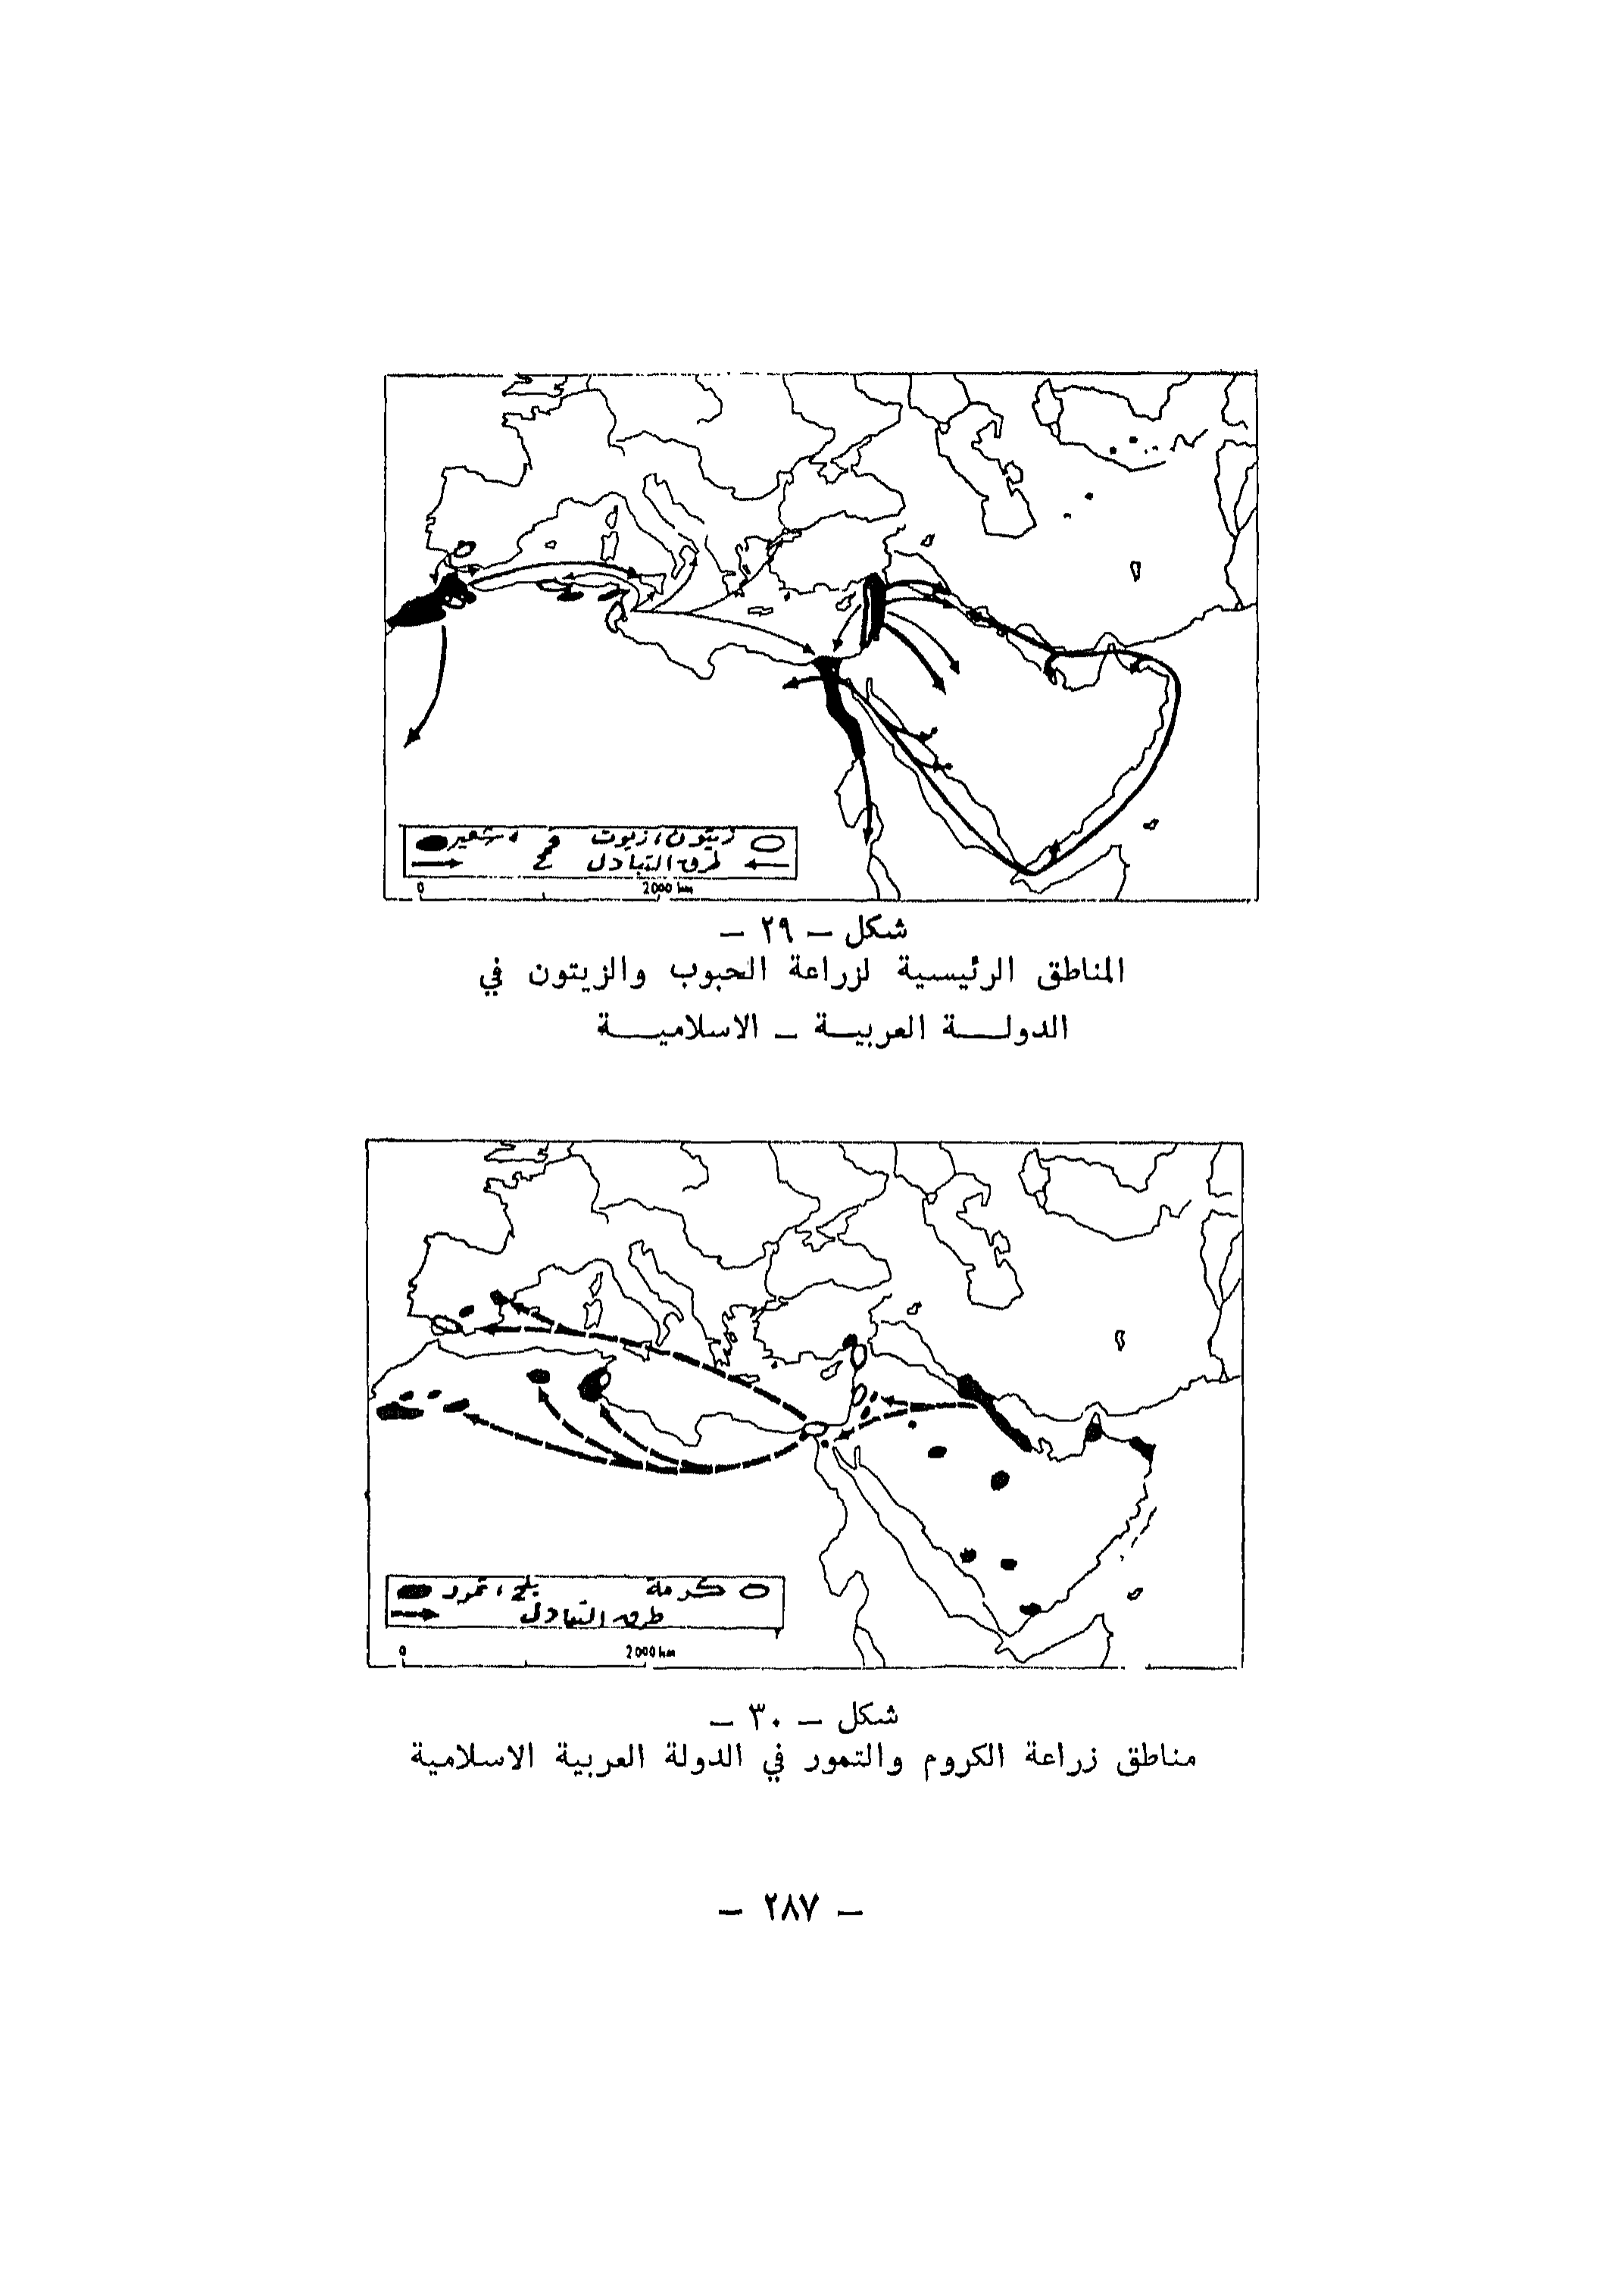 زيتون، زيوت قمح، شعير
طرق التبادل
0 2000 km
شكل – ٢٩ –
المناطق الرئيسية لزراعة الحبوب والزيتون في
الدولــة العربيــة – الاسلاميــة
كرمة بلح، تمور
طرق التبادل
0 2000 km
شكل – ٣٠ –
مناطق زراعة الكروم والتمور في الدولة العربية الاسلامية
– ٢٨٧ –